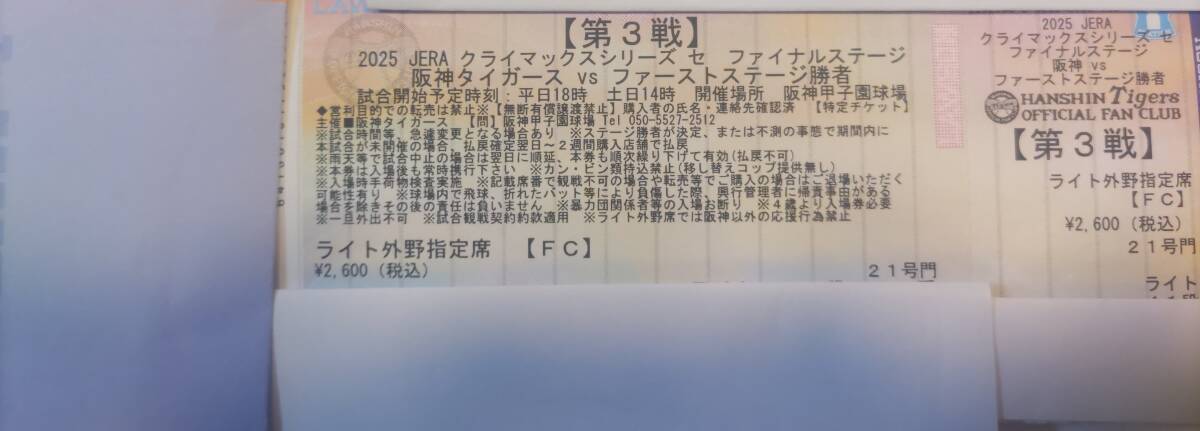 【第3戦】
2025 JERA クライマックスシリーズ セ　ファイナルステージ
阪神タイガース vs ファーストステージ勝者
試合開始予定時刻:平日18時　土日14時　開催場所　阪神甲子園球場
◆営利目的での転売は禁止※【無断有償譲渡禁止】購入者の氏名・連絡先確認済　【特定チケット】
主催■阪神タイガース　【問】阪神甲子園球場 Tel 050-5527-2512
※試合時間等、急遽変更となる場合あり　※ステージ勝者が決定、または不測の事態で期間内に
本試合が未開催の場合、払戻確定翌日～2週間購入店舗で払戻
※雨天等で試合中止の場合は翌日に順延、本券も順次繰り下げて有効(払戻不可)
本券は入場後も常時携行下さい　※カン・ビン類持込禁止(移し替えコップ提供無し)
※入場時に手荷物検査実施　※記載席番で観戦不可の場合や転売等でご購入の場合はご退場いただく
場合有り　※球場内で飛球、折れたバット等により負傷した際、興行管理者に帰責事由がある
可能性を除き、その後の責任は負いません　※暴力団関係者等の入場お断り　※4歳より入場券必要
※一旦外出不可　※試合観戦契約約款適用　※ライト外野席では阪神以外の応援行為禁止
ライト外野指定席　【FC】
¥2,600(税込)
21号門
2025 JERA
クライマックスシリーズ セ
ファイナルステージ
阪神 vs
ファーストステージ勝者
HANSHIN Tigers
OFFICIAL FAN CLUB
【第3戦】
ライト外野指定席
【FC】
¥2,600(税込)
21号門
ライト